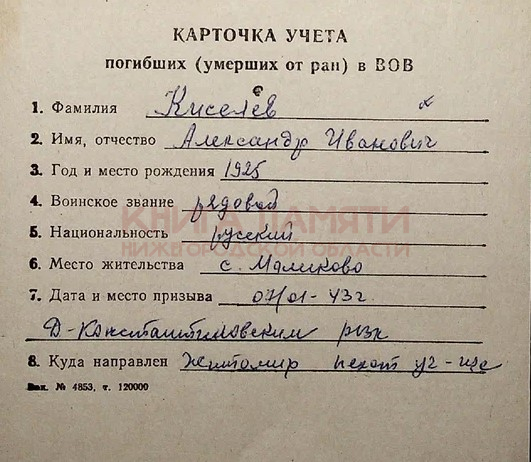 КАРТОЧКА УЧЕТА
погибших (умерших от ран) в ВОВ
1. Фамилия Киселев
2. Имя, отчество Александр Иванович
3. Год и место рождения 1925
4. Воинское звание рядовой
КНИГА ПАМЯТИ
5. Национальность русский
НИЖЕГОРОДСКОЙ ОБЛАСТИ
6. Место жительства с. Маликово
7. Дата и место призыва 07/01-43г.
Д-Константиновским рвк
8. Куда направлен Житомир пехот уч-ще
Зак. № 4853, т. 120000